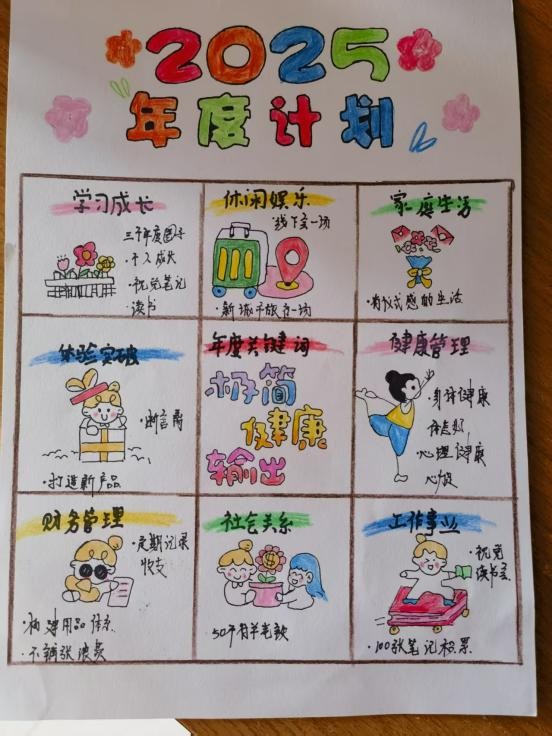 2025
年度计划
学习成长
三千年度图卡
·个人成长
·视觉笔记
读书
休闲娱乐
线下会一场
·新城市旅行一场
家庭生活
·有仪式感的生活
体验突破
·断舍离
·打造新产品
年度关键词
极简
健康
输出
健康管理
·身体健康
体态好
·心理健康
心放
财务管理
·定期记录
收支
·不铺张浪费
社会关系
工作事业
·视觉
读书会
·100张笔记积累